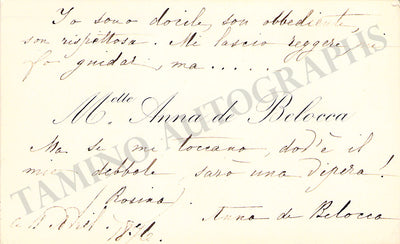 Io sono docile, son obbediente
son rispettosa. Mi lascio reggere, mi
fo guidar, ma......
Melle Anna de Belocca
Ma se mi toccano, dov'è il
mio debbole, sarò una vipera!
(Rosina)
Anna de Belocca
Avril
TAMINO AUTOGRAPHS